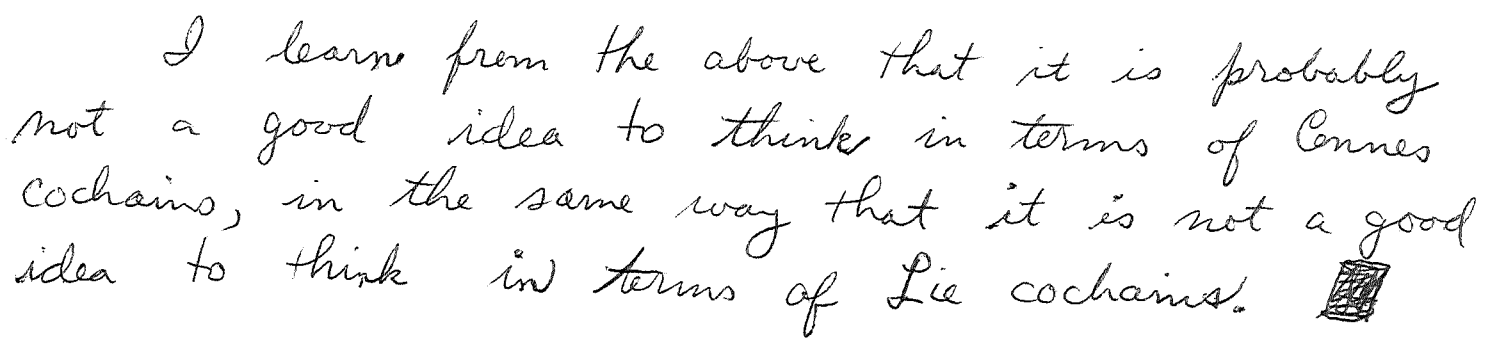 I learn from the above that it is probably
not a good idea to think in terms of Connes
cochains, in the same way that it is not a good
idea to think in terms of Lie cochains.